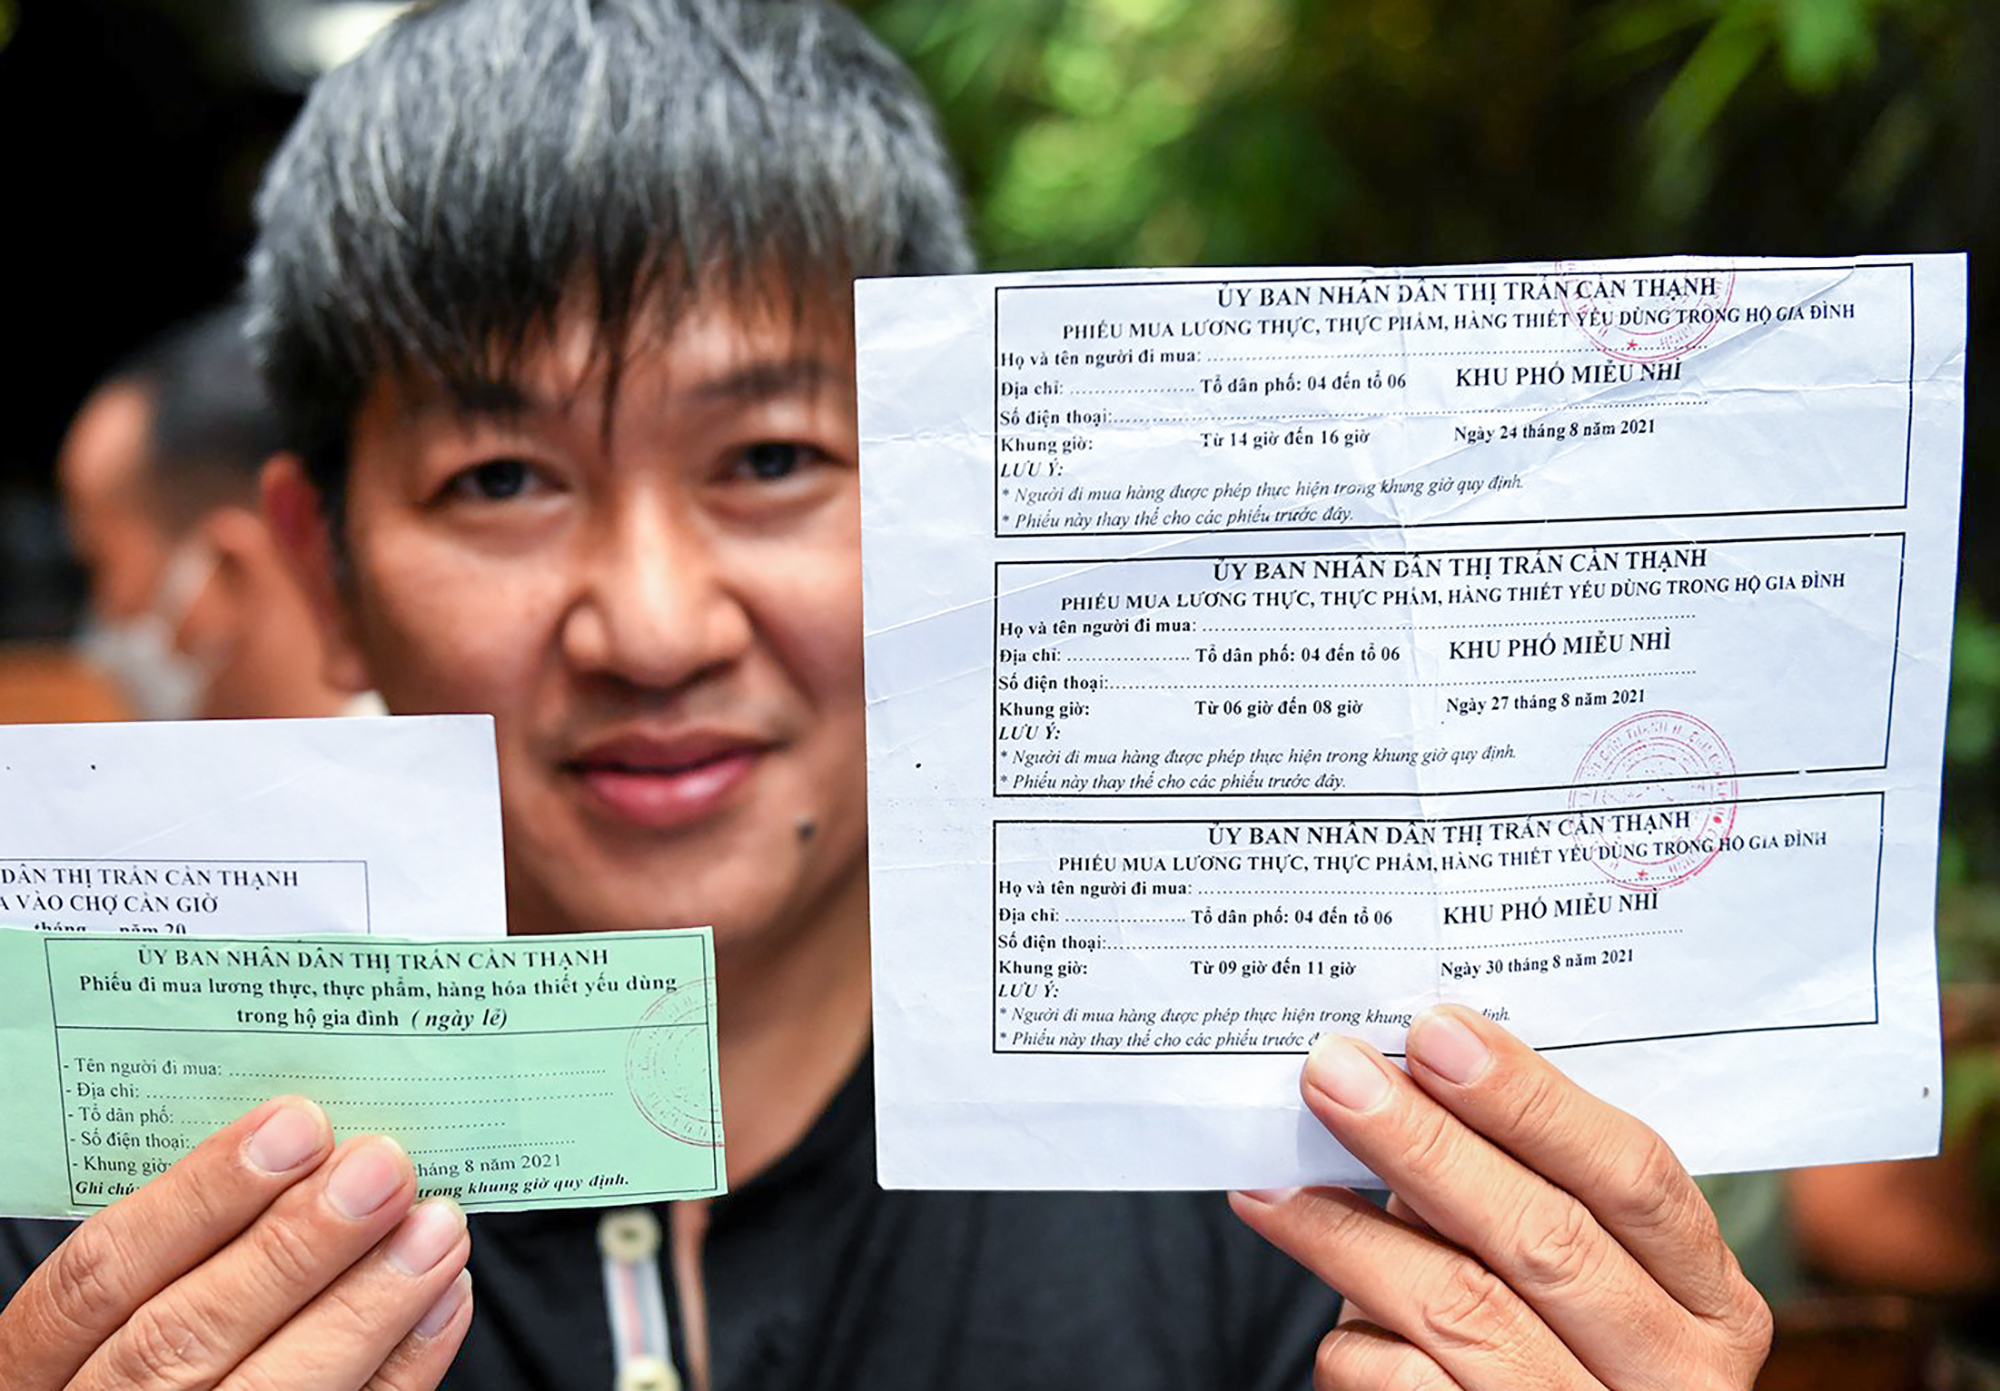 DÂN THỊ TRẤN CẦN THẠNH
VÀO CHỢ CẦN GIỜ
tháng năm 20
ỦY BAN NHÂN DÂN THỊ TRẤN CẦN THẠNH
Phiếu đi mua lương thực, thực phẩm, hàng hóa thiết yếu dùng
trong hộ gia đình ( ngày lẻ)
- Tên người đi mua: ..............................
- Địa chỉ: ..............................
- Tổ dân phố: ..............................
- Số điện thoại: ..............................
- Khung giờ:
háng 8 năm 2021
Ghi chú: trong khung giờ quy định.
ỦY BAN NHÂN DÂN THỊ TRẤN CẦN THẠNH
PHIẾU MUA LƯƠNG THỰC, THỰC PHẨM, HÀNG THIẾT YẾU DÙNG TRONG HỘ GIA ĐÌNH
Họ và tên người đi mua: ..............................
Địa chỉ: .................... Tổ dân phố: 04 đến tổ 06 KHU PHỐ MIỄU NHÌ
Số điện thoại:..............................
Khung giờ: Từ 14 giờ đến 16 giờ Ngày 24 tháng 8 năm 2021
LƯU Ý:
* Người đi mua hàng được phép thực hiện trong khung giờ quy định.
* Phiếu này thay thế cho các phiếu trước đây.
ỦY BAN NHÂN DÂN THỊ TRẤN CẦN THẠNH
PHIẾU MUA LƯƠNG THỰC, THỰC PHẨM, HÀNG THIẾT YẾU DÙNG TRONG HỘ GIA ĐÌNH
Họ và tên người đi mua: ..............................
Địa chỉ: .................... Tổ dân phố: 04 đến tổ 06 KHU PHỐ MIỄU NHÌ
Số điện thoại:..............................
Khung giờ: Từ 06 giờ đến 08 giờ Ngày 27 tháng 8 năm 2021
LƯU Ý:
* Người đi mua hàng được phép thực hiện trong khung giờ quy định.
* Phiếu này thay thế cho các phiếu trước đây.
ỦY BAN NHÂN DÂN THỊ TRẤN CẦN THẠNH
PHIẾU MUA LƯƠNG THỰC, THỰC PHẨM, HÀNG THIẾT YẾU DÙNG TRONG HỘ GIA ĐÌNH
Họ và tên người đi mua: ..............................
Địa chỉ: .................... Tổ dân phố: 04 đến tổ 06 KHU PHỐ MIỄU NHÌ
Số điện thoại:..............................
Khung giờ: Từ 09 giờ đến 11 giờ Ngày 30 tháng 8 năm 2021
LƯU Ý:
* Người đi mua hàng được phép thực hiện trong khung định.
* Phiếu này thay thế cho các phiếu trước đ